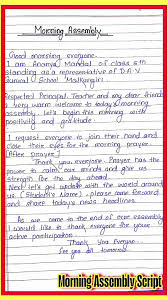 Morning Assembly
Good morning everyone.
I am Ananya Mandal of class 6th
standing as a representative of D.A.V
School Malkangiri
Respected Principal, Teacher and my dear friends
very warm welcome to today's morning
assembly. let's begin this morning with
positivity and gratitude.
I request everyone to join their hand and
close their eyes for the morning prayer.
(After prayer)
Thank you everyone. Prayer has the
power to calm our minds and give us
strength for the day ahead.
Next let's get update with the world around
us (Students Name), please come forward
and share todays news headlines.
As we come to the end of our assembly
I would like to thank everyone for your
active participation
Thank you Everyone
See you all tomorrow
Morning Assembly Script